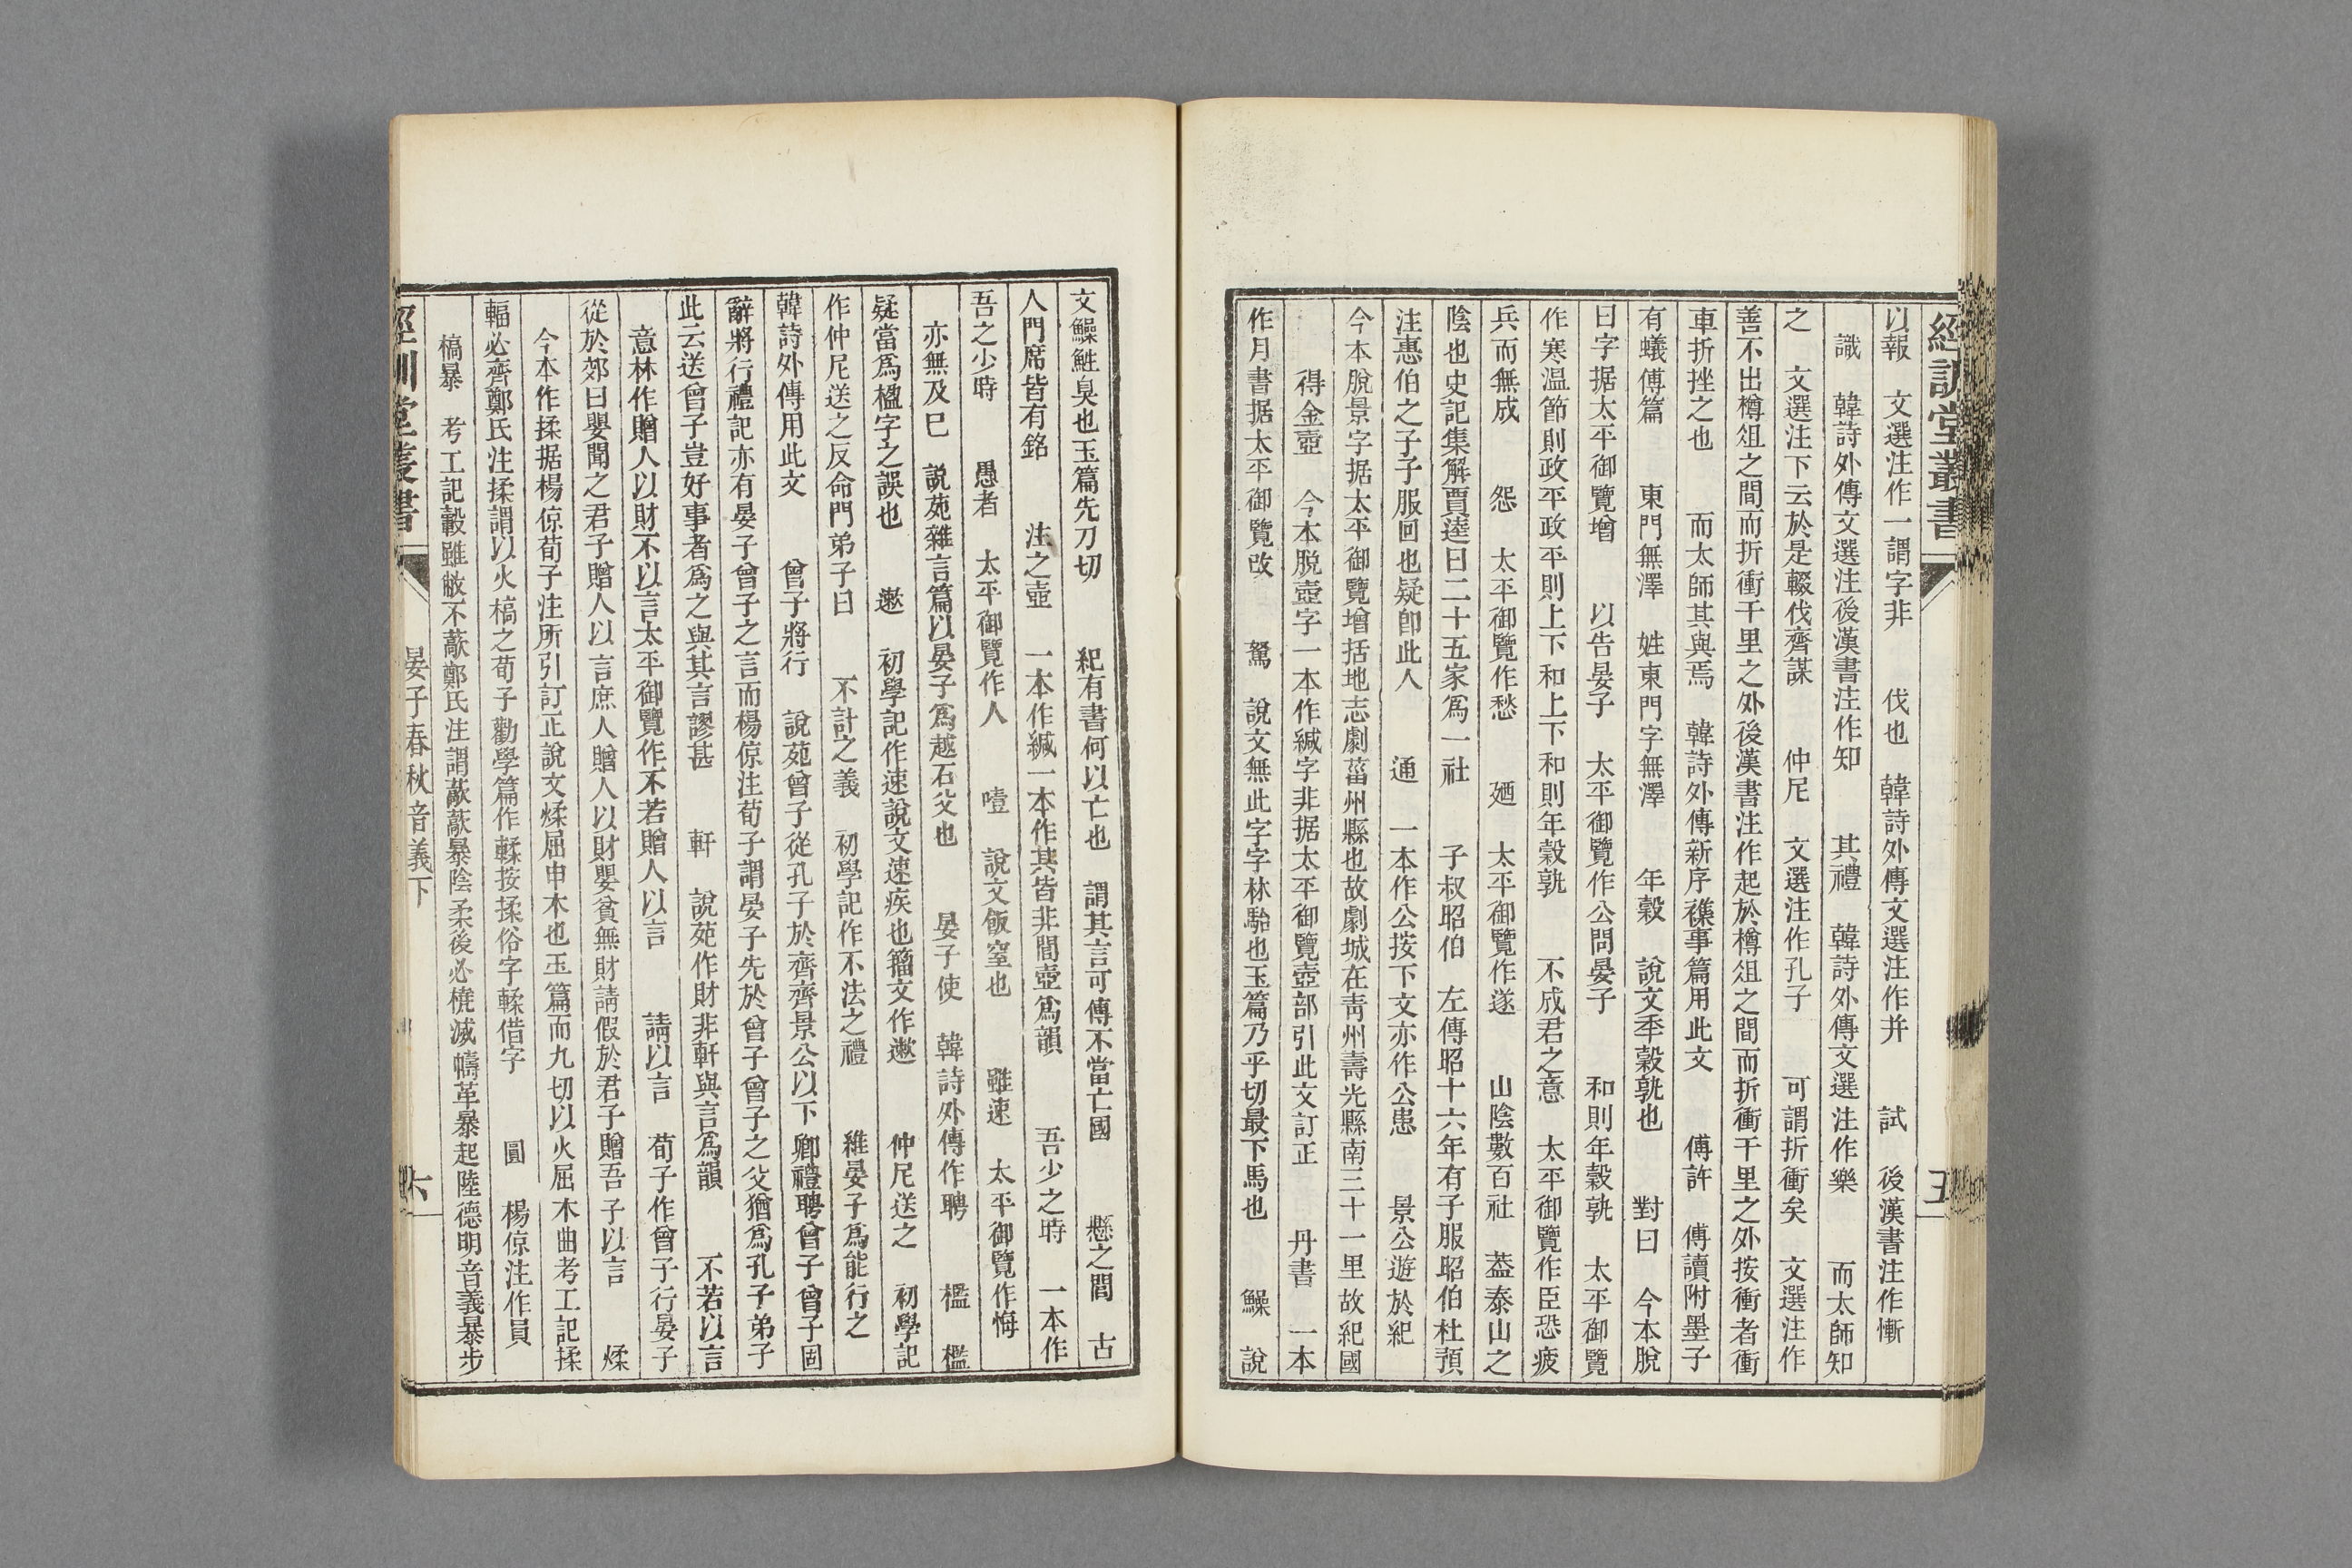 經訓堂叢書
五
以報　文選注作一謂字非　　伐也　韓詩外傳文選注作并　　試　後漢書注作慚
識　韓詩外傳文選注後漢書注作知　　其禮　韓詩外傳文選注作樂　　而太師知
之　文選注下云於是輟伐齊謀　　仲尼　文選注作孔子　　可謂折衝矣　文選注作
善不出樽俎之間而折衝千里之外後漢書注作起於樽俎之間而折衝千里之外按衝者衝
車折挫之也　　而太師其與焉　韓詩外傳新序襍事篇用此文　　傅許　傅讀附墨子
有蟻傅篇　　東門無澤　姓東門字無澤　　年穀　說文秊穀孰也　　對曰　今本脫
曰字据太平御覽增　　以告晏子　太平御覽作公問晏子　　和則年穀孰　太平御覽
作寒温節則政平政平則上下和上下和則年穀孰　　不成君之意　太平御覽作臣恐疲
兵而無成　　怨　太平御覽作愁　　廼　太平御覽作遂　　山陰數百社　葢泰山之
陰也史記集解賈逵曰二十五家爲一社　　子叔昭伯　左傳昭十六年有子服昭伯杜預
注惠伯之子子服回也疑卽此人　　通　一本作公按下文亦作公患　　景公遊於紀
今本脫景字据太平御覽增括地志劇菑州縣也故劇城在青州壽光縣南三十一里故紀國
得金壺　今本脫壺字一本作緘字非据太平御覽壺部引此文訂正　　丹書　一本
作月書据太平御覽改　　駑　說文無此字字林駘也玉篇乃乎切最下馬也　　鱢　說
文鱢鮏臭也玉篇先刀切　　紀有書何以亡也　謂其言可傳不當亡國　　懸之閭　古
人門席皆有銘　　注之壺　一本作緘一本作其皆非閭壺爲韻　　吾少之時　一本作
吾之少時　　愚者　太平御覽作人　　噎　說文飯窒也　　雖速　太平御覽作悔
亦無及巳　說苑雜言篇以晏子爲越石父也　　晏子使　韓詩外傳作聘　　檻　檻
疑當爲楹字之誤也　　遬　初學記作速說文速疾也籀文作遬　　仲尼送之　初學記
作仲尼送之反命門弟子曰　　不計之義　初學記作不法之禮　　維晏子爲能行之
韓詩外傳用此文　　曾子將行　說苑曾子從孔子於齊齊景公以下卿禮聘曾子曾子固
辭將行禮記亦有晏子曾子之言而楊倞注荀子謂晏子先於曾子曾子之父猶爲孔子弟子
此云送曾子豈好事者爲之與其言謬甚　　軒　說苑作財非軒與言爲韻　　不若以言
意林作贈人以財不以言太平御覽作不若贈人以言　　請以言　荀子作曾子行晏子
從於郊曰嬰聞之君子贈人以言庶人贈人以財嬰貧無財請假於君子贈吾子以言　　煣
今本作揉据楊倞荀子注所引訂正說文煣屈申木也玉篇而九切以火屈木曲考工記揉
輻必齊鄭氏注揉謂以火槁之荀子勸學篇作輮按揉俗字輮借字　　圓　楊倞注作員
槁暴　考工記轂雖敝不藃鄭氏注謂藃藃暴陰柔後必橈減幬革暴起陸德明音義暴步
經訓堂叢書
晏子春秋音義下
六